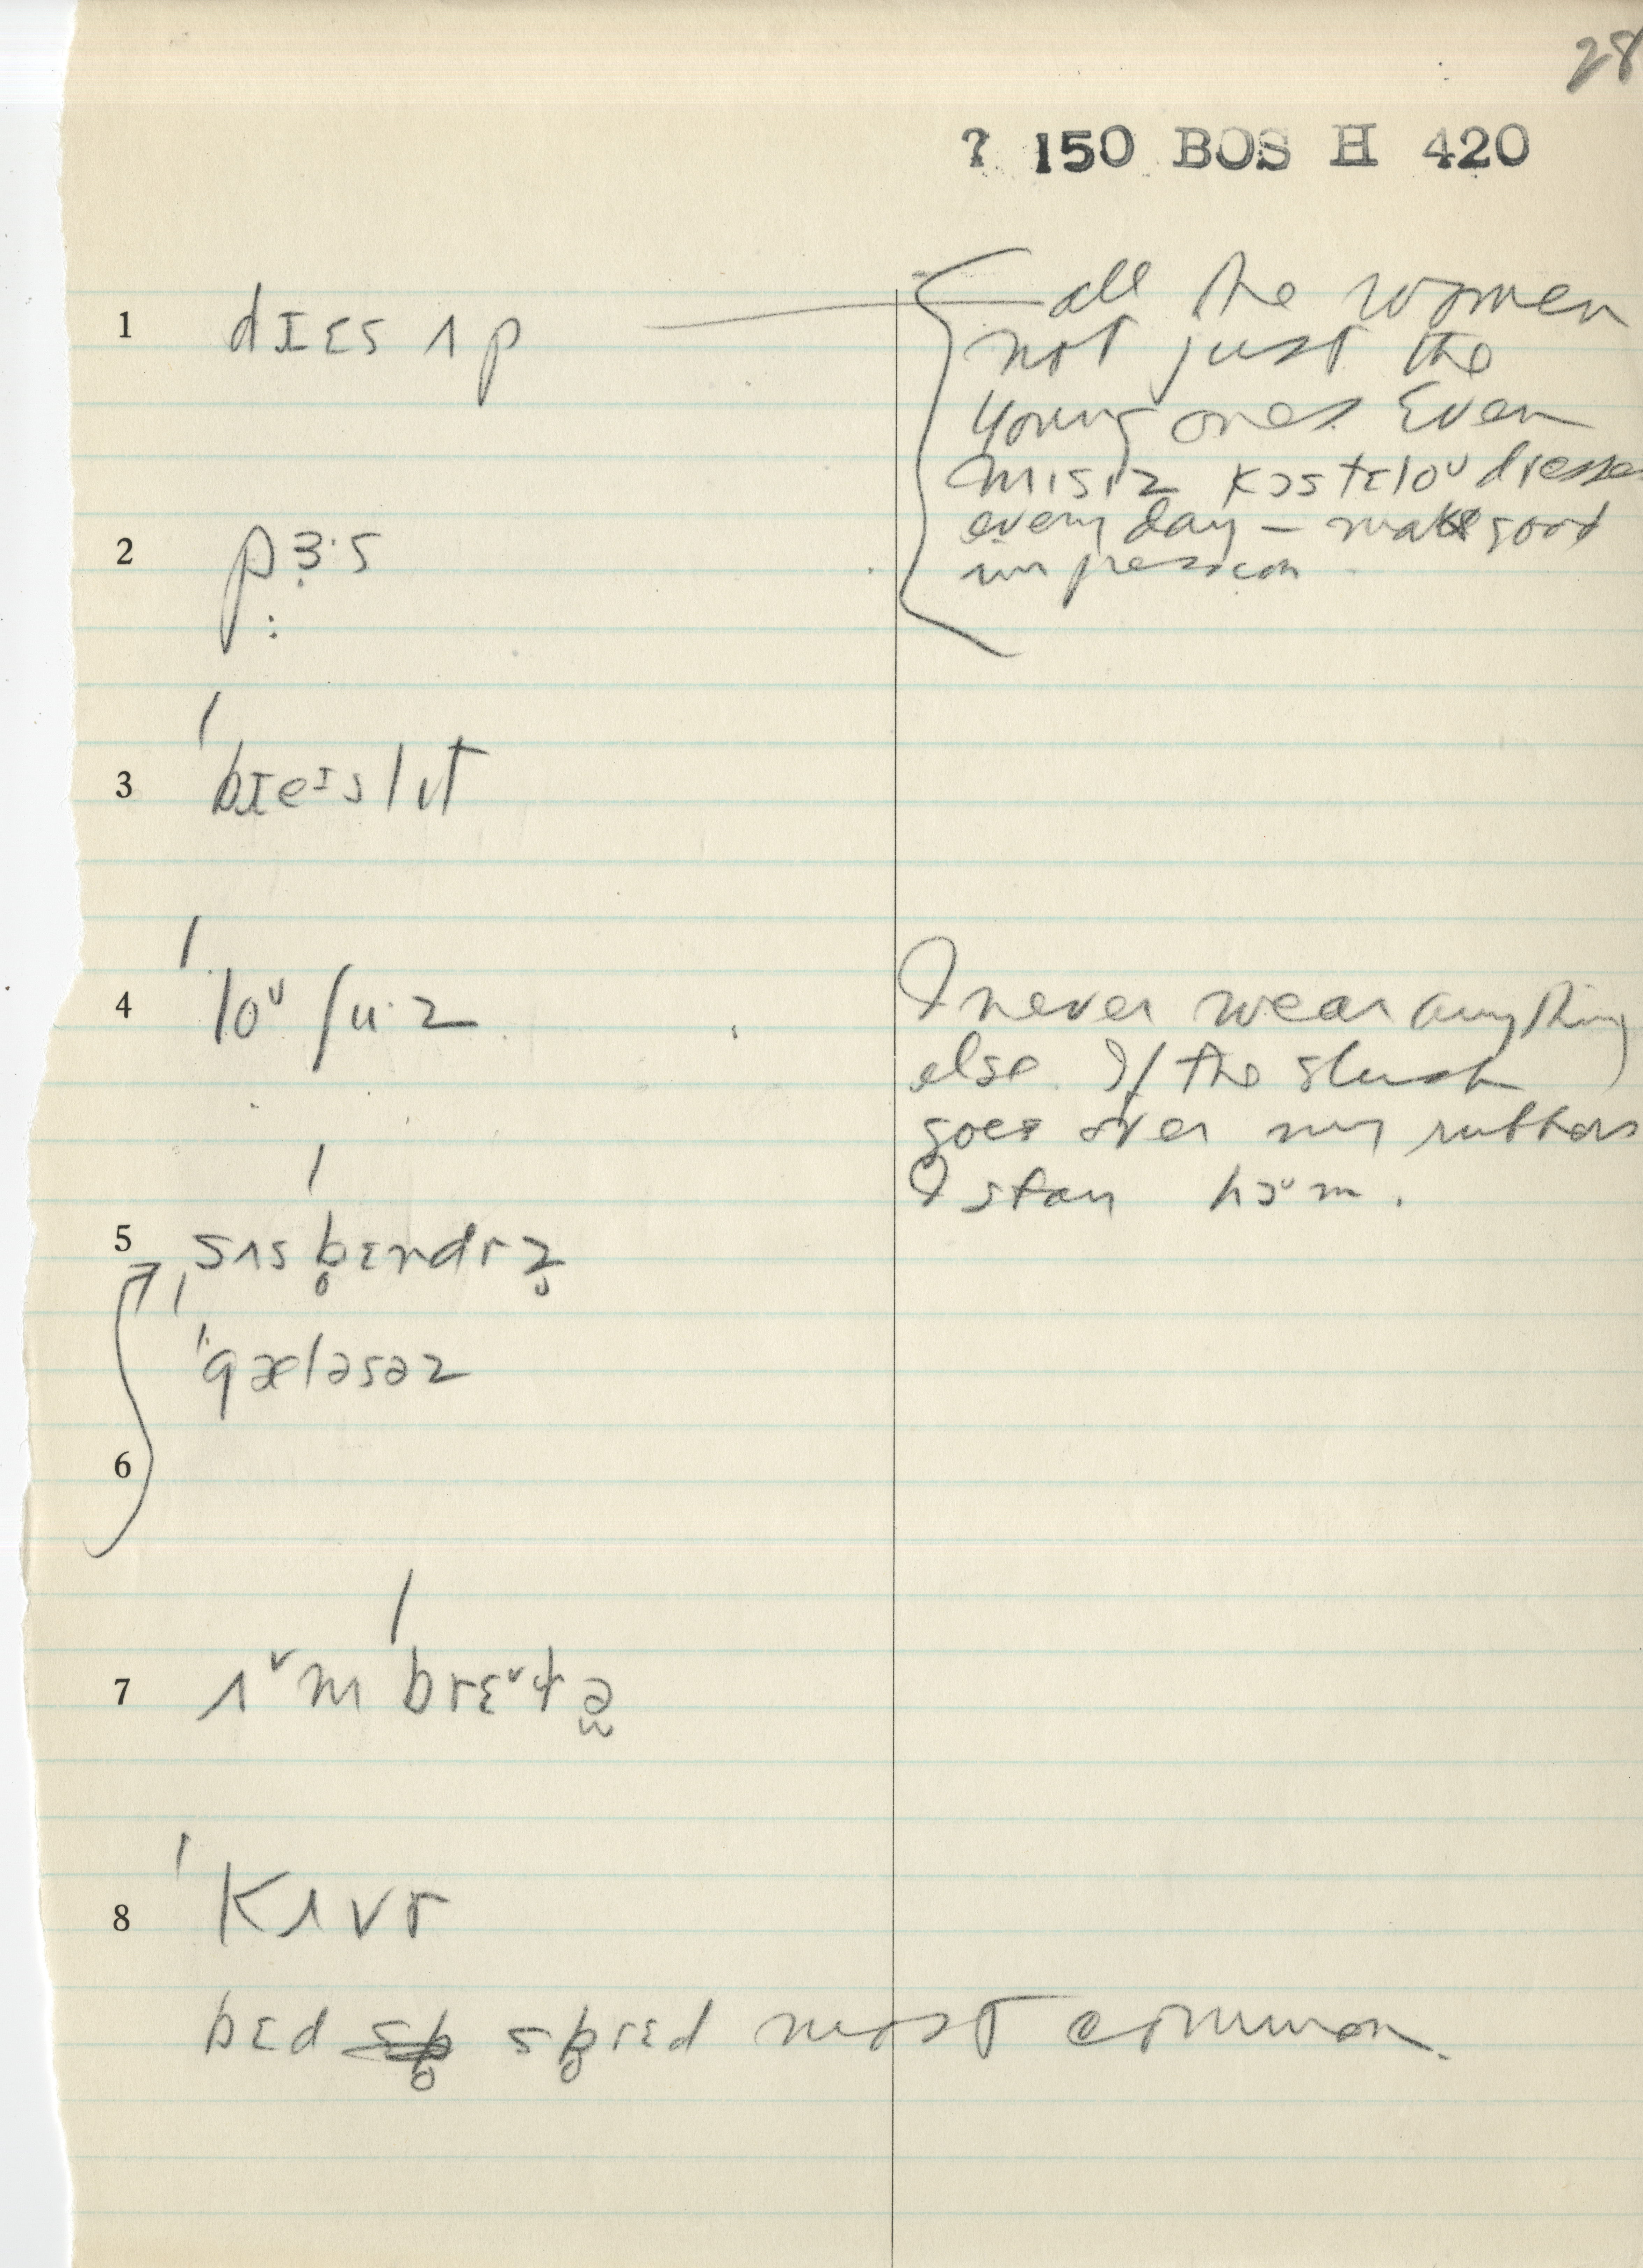 28
? 150 BOS H 420
1 dɪɛs ʌp
all the women
not just the
young ones. Even
mɪsɪz kɔstɛloᶷ dresses
every day – make good
impression.
2 pɜ·s
3 ˈbɪeᶦslɪt
4 ˈloᶷ ʃu·z
I never wear anything
else. If the slush
goes over my rubbers
I stay hɔᵛm.
5 ˌsʌsˈb̥ɛndɾz̥
ˈgæləsəz
6
7 ʌᵛmˈbrɛᵛɬə
8 ˈkʌvɾ
bɛd sb̥rɛd most common.